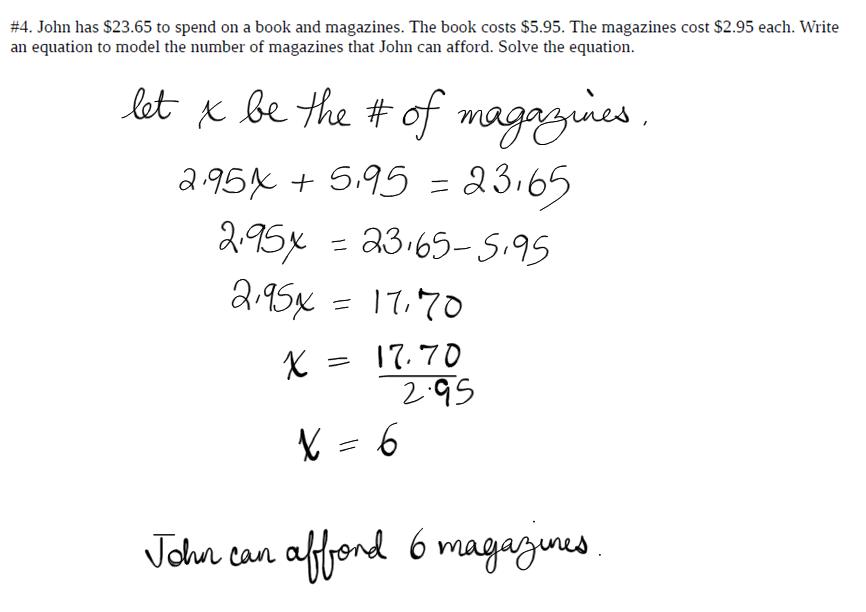 #4. John has $23.65 to spend on a book and magazines. The book costs $5.95. The magazines cost $2.95 each. Write
an equation to model the number of magazines that John can afford. Solve the equation.
let x be the # of magazines.
2.95x + 5.95 = 23.65
2.95x = 23.65 - 5.95
2.95x = 17.70
x = 17.70
2.95
x = 6
John can afford 6 magazines.